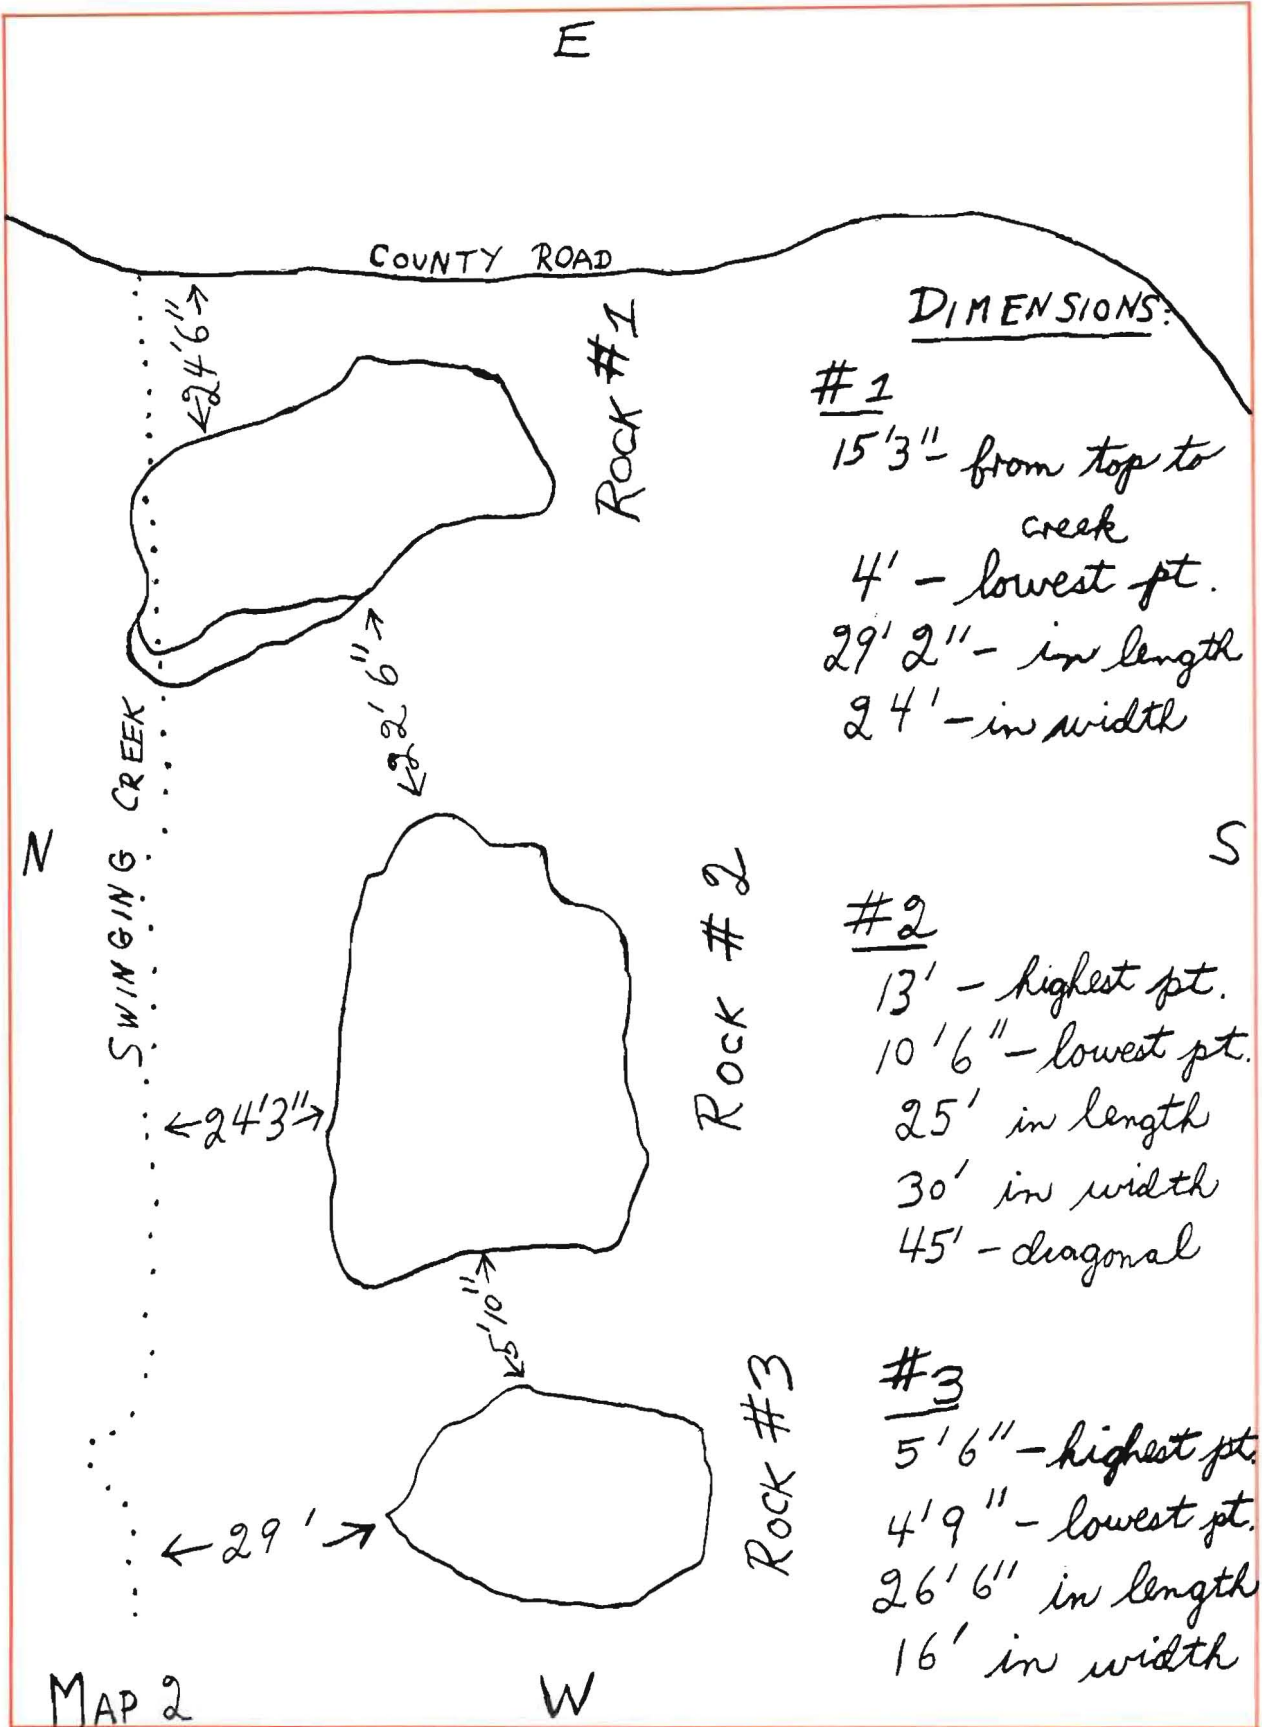 E
COUNTY ROAD
24'6"
ROCK #1
DIMENSIONS:
#1
15'3" - from top to
creek
4' - lowest pt.
29' 2" - in length
24' - in width
22' 6"
SWINGING CREEK
N
S
ROCK #2
#2
13' - highest pt.
10'6" - lowest pt.
25' in length
30' in width
45' - diagonal
24'3"
5'10"
ROCK #3
#3
5'6" - highest pt.
4'9" - lowest pt.
26'6" in length
16' in width
29'
MAP 2
W